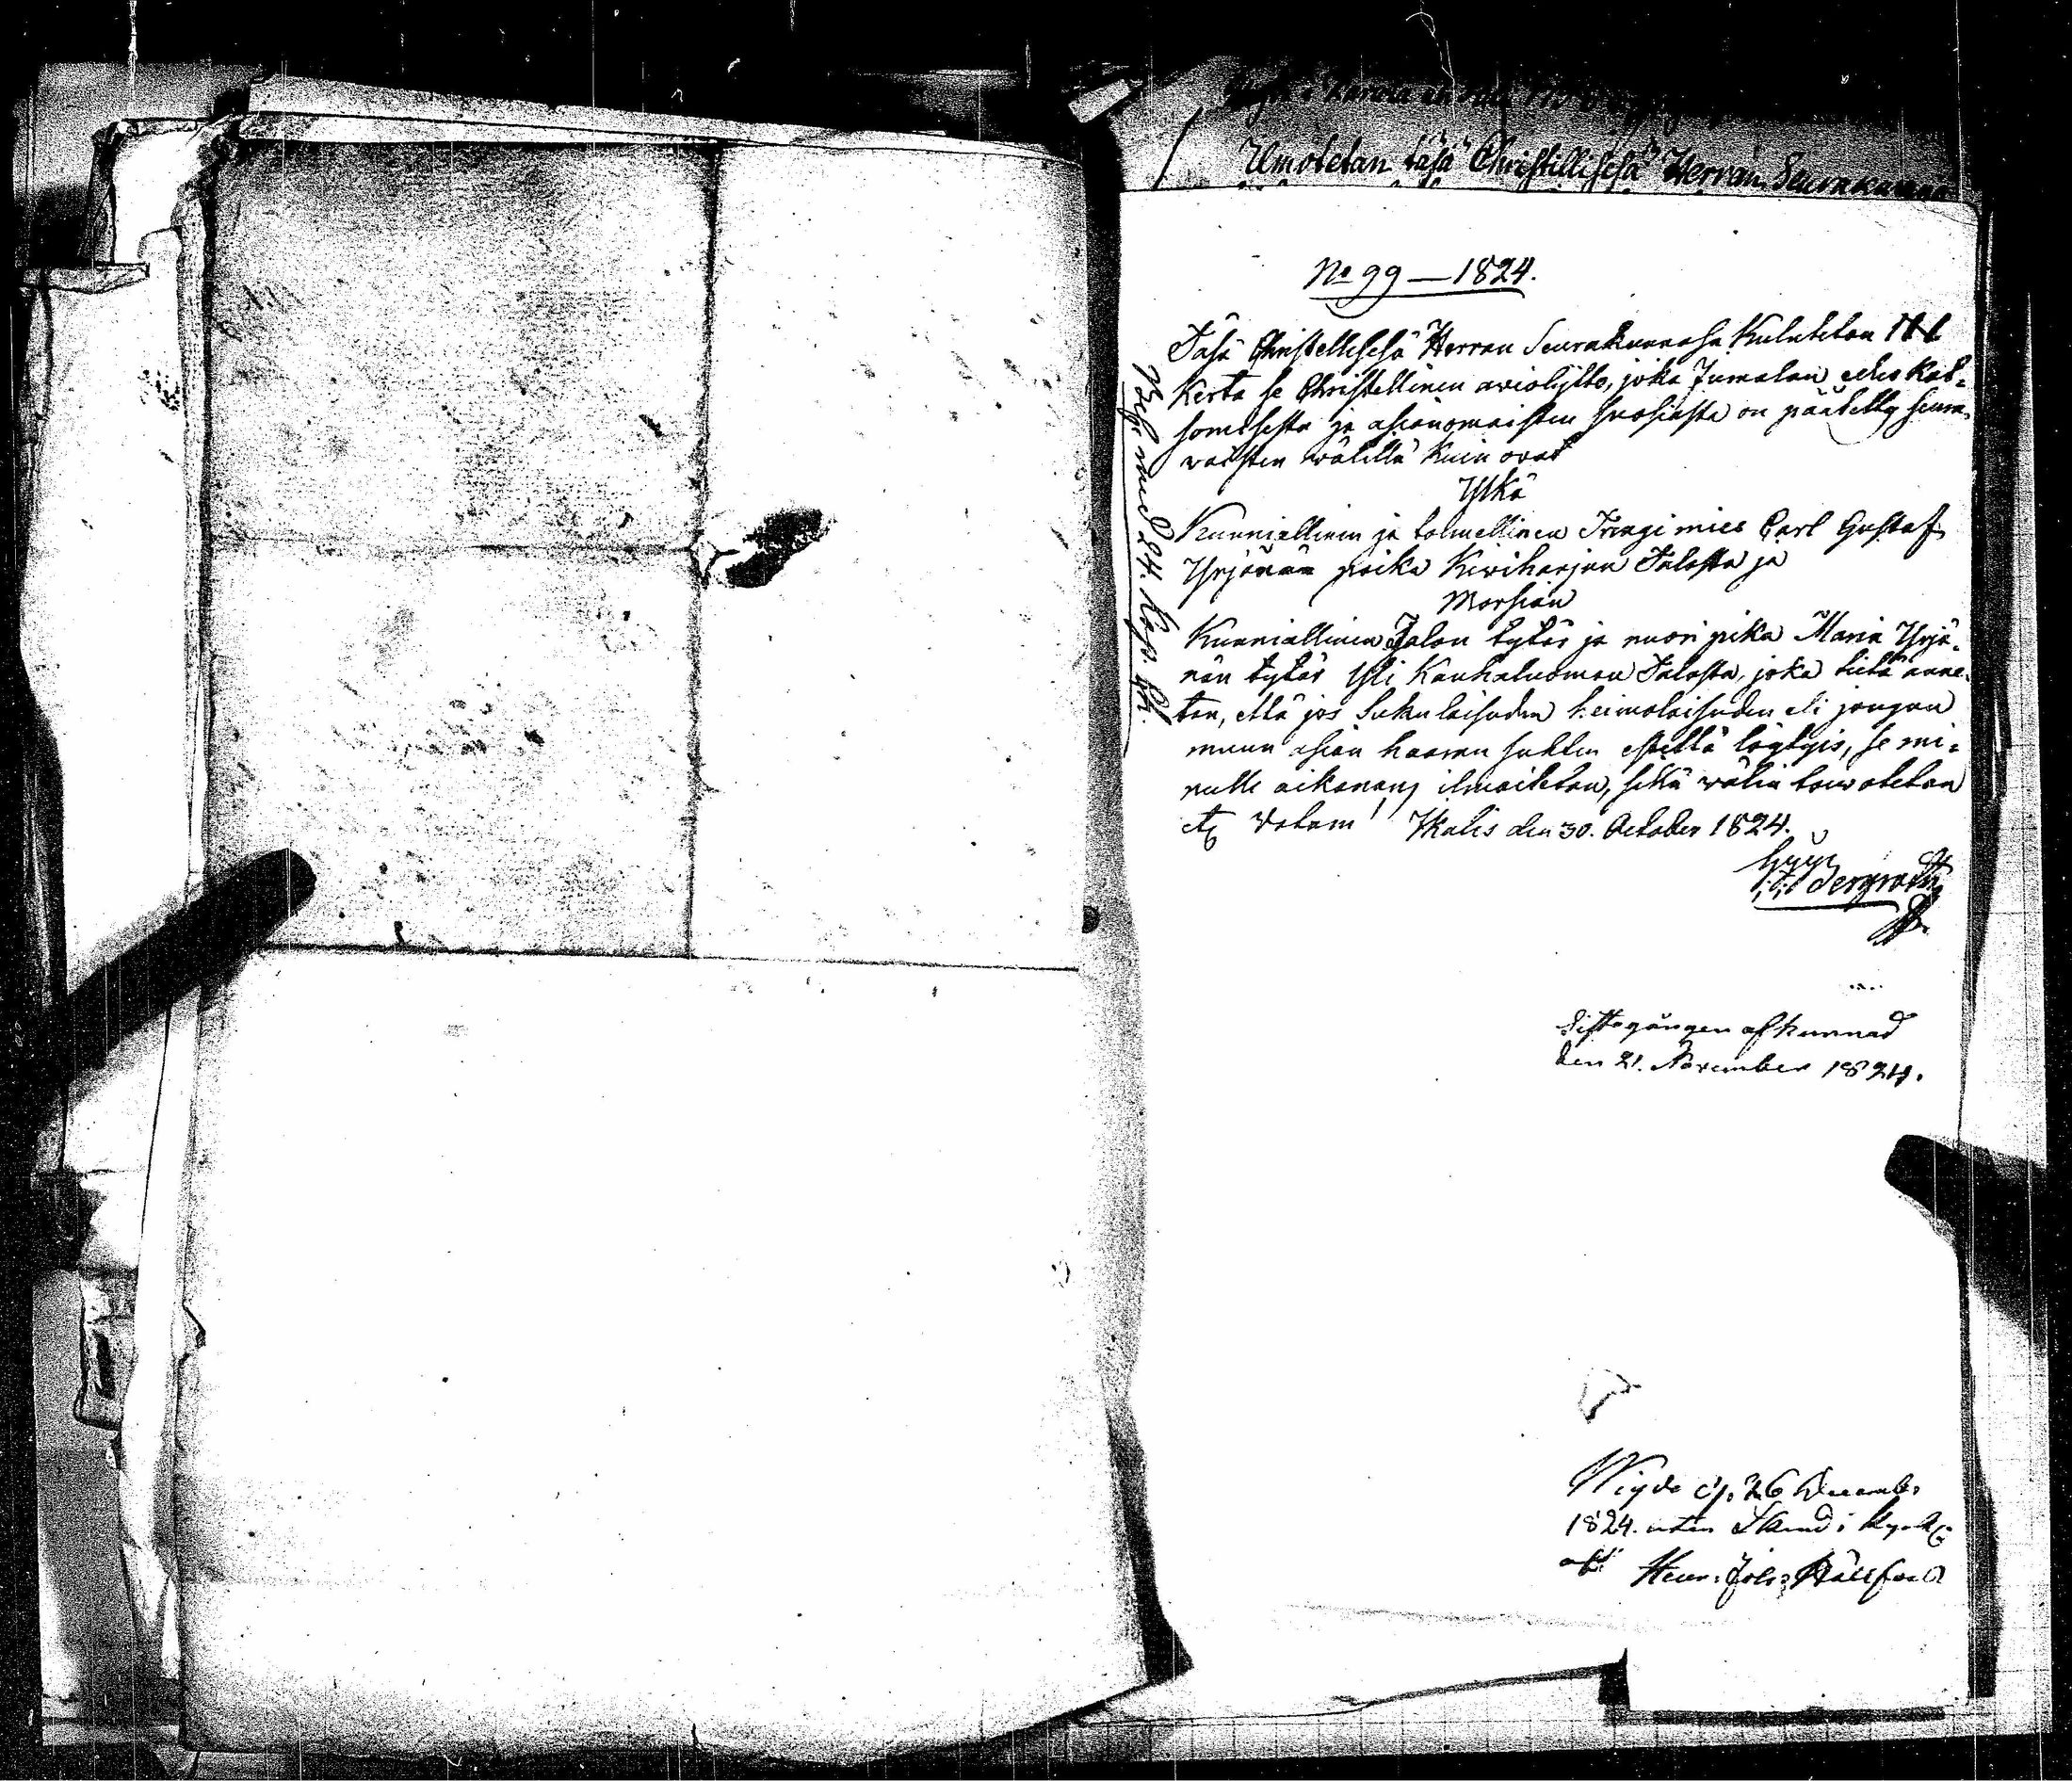 Ilmotetan täsä Christillisesä Herran Seurakunnasa
No 99 — 1824.
Täsä Christellisesä Herran Seurakunnasa Kulutetan
Kerta se Christellinen aviolijtto, joka Jumalan edes kat-
somisesta ja asianomaisten suosiosta on päätetty seura-
vaisten välillä kuin ovat
Ylkä
Kunniallinen ja toimellinen Trengi mies Carl Gustaf
Yrjönän poika Kiviharjun Talosta ja
Morsian
Kunniallinen Talon tytär ja nuori pika Maria Yrjö-
nän tytär Yli Kauhaluoman Talosta, joka tietä anne-
tan, että jos Sukulaisuden heimolaisuden eli jongun
muun asian haaran suhten estettä löytyis, se mi-
nulle aikanans ilmoitetan, sillä välin toivotetan
etc Votum! Ikalis den 30. October 1824.
Sista gången afkunnad
den 21. November 1824.
Wigde d. 26 December
1824. utan Skrud i Kyrk:
af Henr: Joh:
Behr med 24. Kop. Sch.